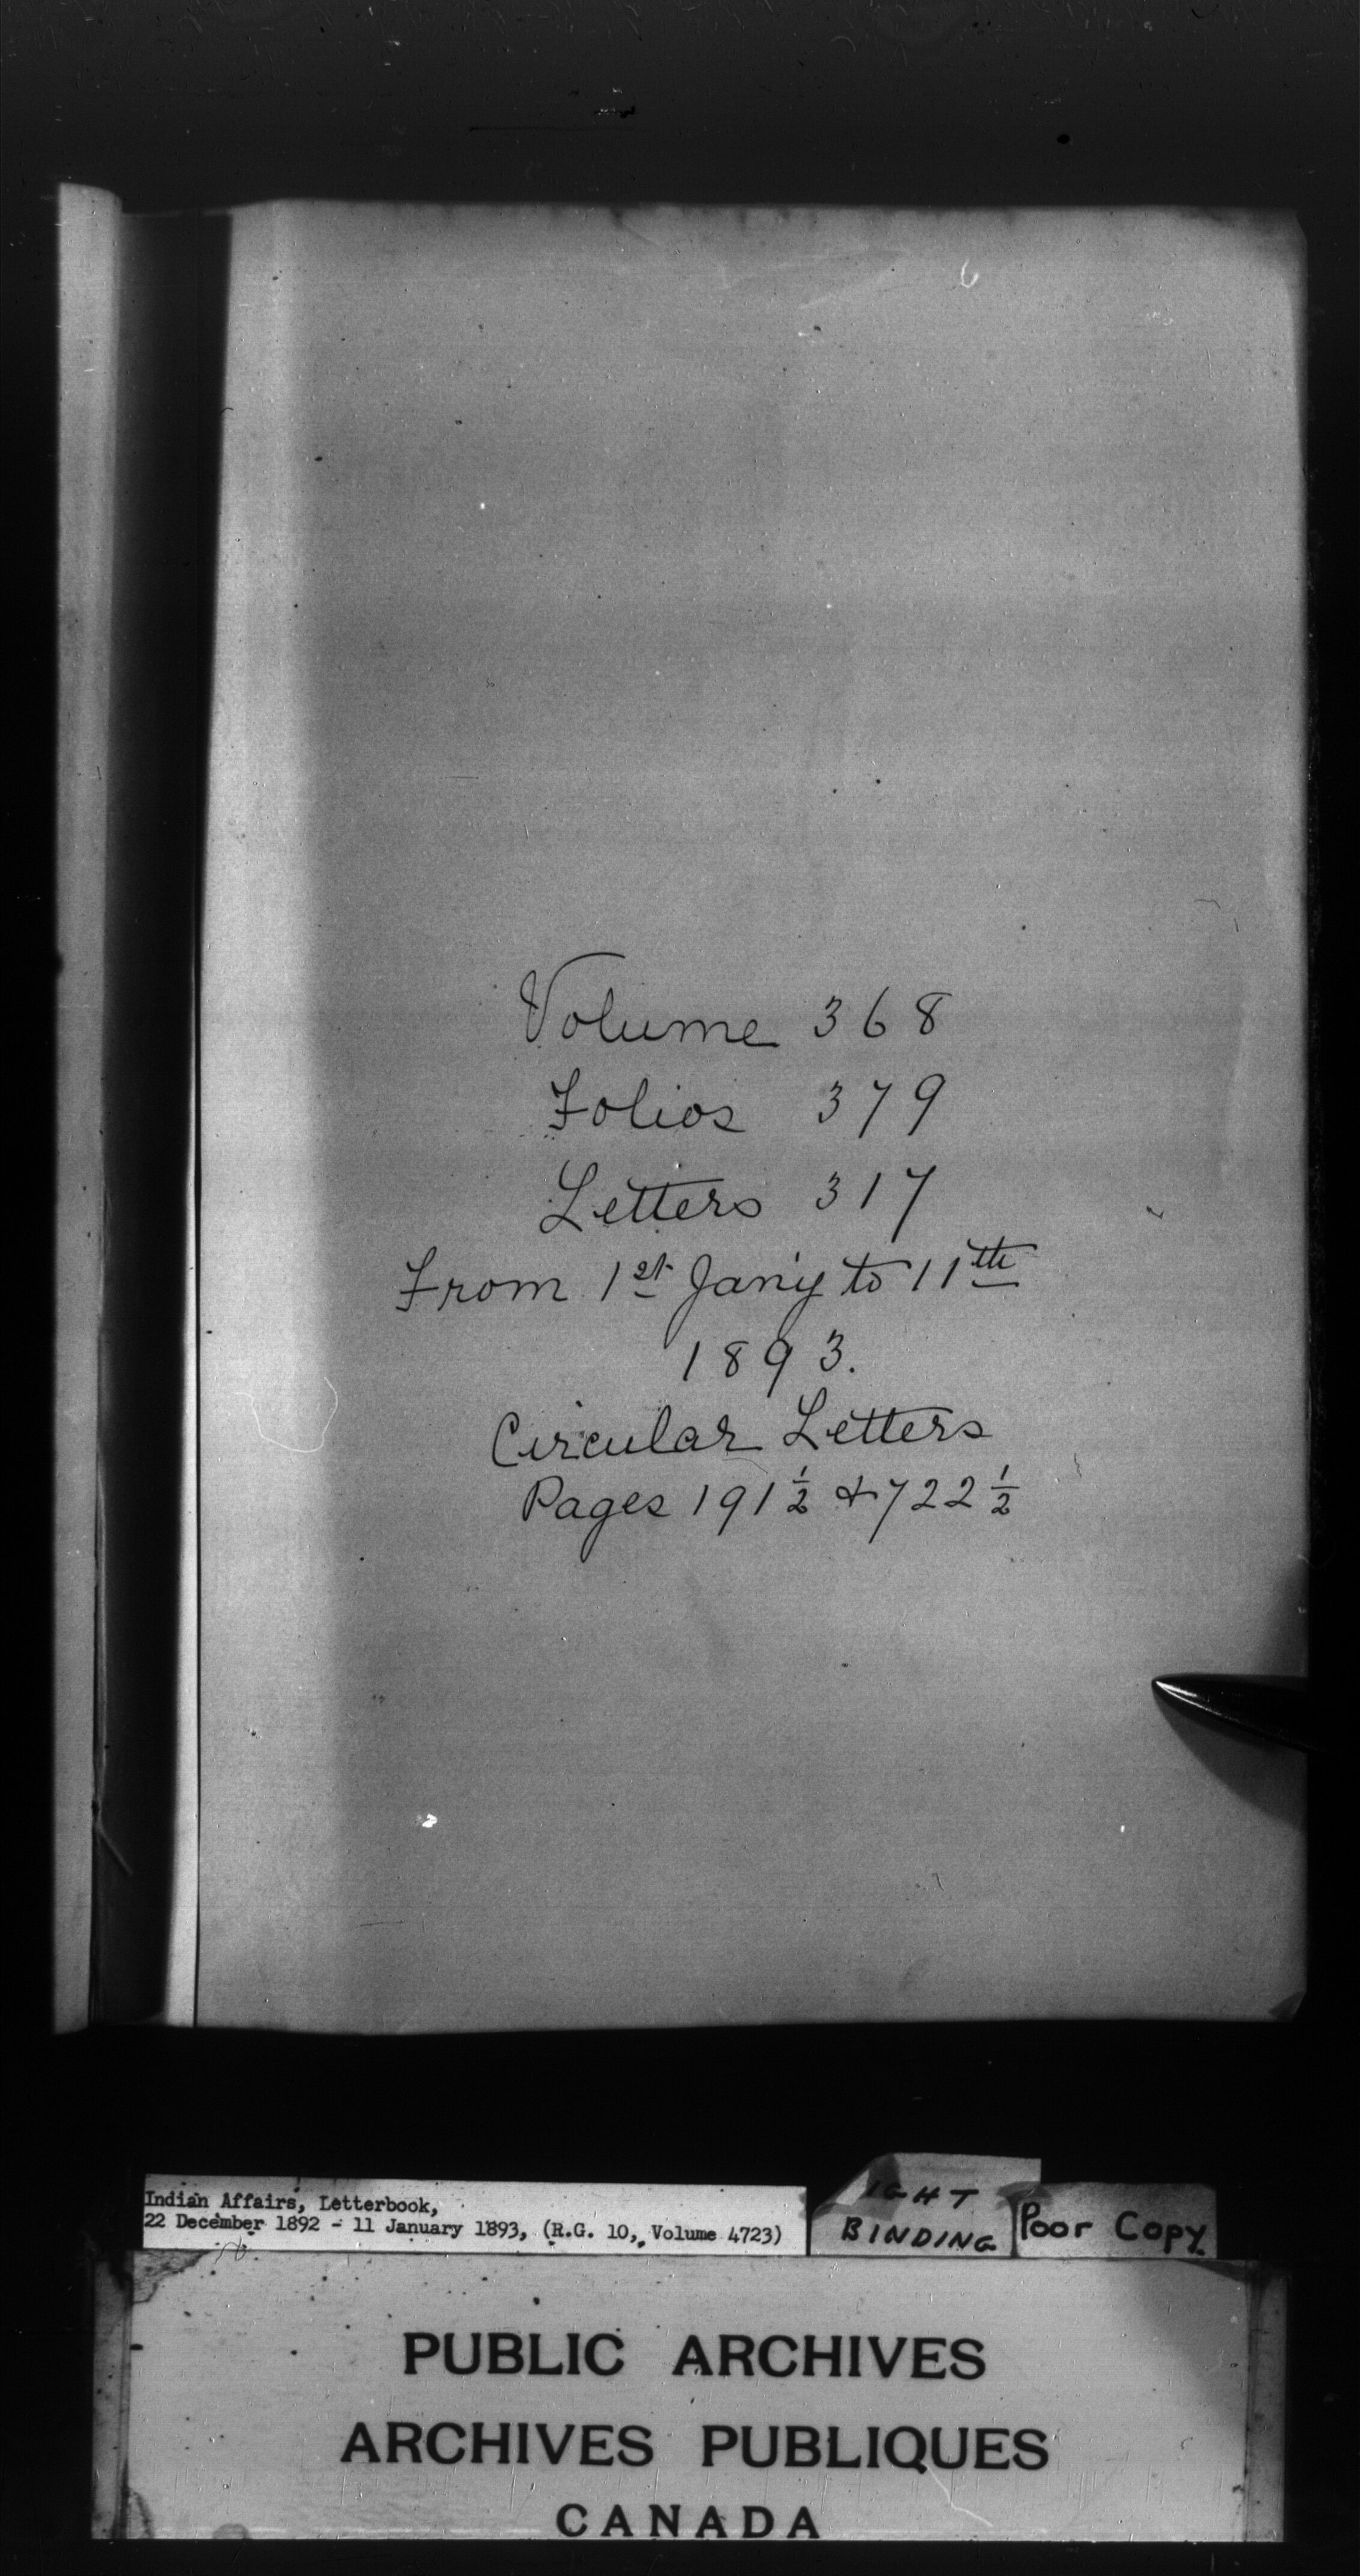 Volume 368
Folios 379
Letters 317
From 1st Jan'y to 11th
1893.
Circular Letters
Pages 191½ & 722½
Indian Affairs, Letterbook,
22 December 1892 - 11 January 1893, (R.G. 10, Volume 4723)
IGHT
BINDING
Poor Copy
PUBLIC ARCHIVES
ARCHIVES PUBLIQUES
CANADA